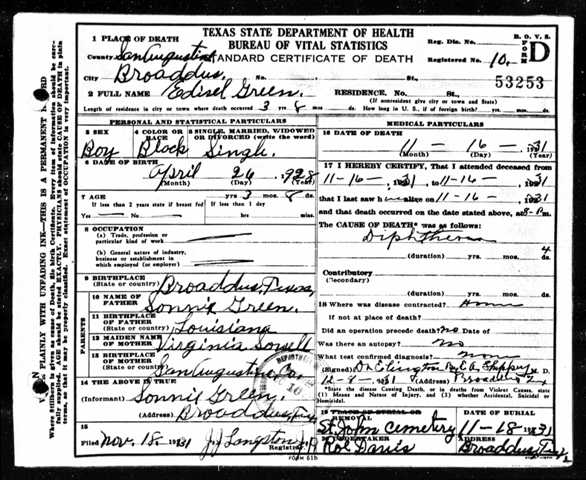 TEXAS STATE DEPARTMENT OF HEALTH
BUREAU OF VITAL STATISTICS
STANDARD CERTIFICATE OF DEATH
B. O. V. S.
FORM D
Reg. Dis. No.
Registered No. 10
53253
1 PLACE OF DEATH
County San Augustine
City Broaddus No. St.
2 FULL NAME Edisel Green. RESIDENCE. No. St.,
(If nonresident give city or town and State)
Length of residence in city or town where death occurred 3 yrs. 8 mos. ds. How long in U. S., if of foreign birth? yrs. mos. ds.
PERSONAL AND STATISTICAL PARTICULARS
3 SEX Boy
4 COLOR OR RACE Black
5 SINGLE, MARRIED, WIDOWED OR DIVORCED (write the word) Single.
6 DATE OF BIRTH April 26 1928
(Month) (Day) (Year)
7 AGE yrs. 3 mos. 8 ds.
If less than 2 years state if breast fed If less than 1 day
Yes No hrs. min.
8 OCCUPATION
(a) Trade, profession or particular kind of work
(b) General nature of industry, business or establishment in which employed (or employer)
9 BIRTHPLACE
(State or country) Broaddus, Texas
PARENTS
10 NAME OF FATHER Sonnie Green.
11 BIRTHPLACE OF FATHER
(State or country) Louisiana
12 MAIDEN NAME OF MOTHER Virginia Sowell
13 BIRTHPLACE OF MOTHER
(State or country) San Augustine Co.
14 THE ABOVE IS TRUE
(Informant) Sonnie Green.
(Address) Broaddus, Texas
15
Filed Nov. 18. 1931 J. J. Langston
Registrar
FORM
MEDICAL PARTICULARS
16 DATE OF DEATH
11 - 16 - 1931
(Month) (Day) (Year)
17 I HEREBY CERTIFY, That I attended deceased from
11-16- 1931, to 11-16- 1931
that I last saw h alive on 11-16- 1931
and that death occurred on the date stated above, at 8 P.m.
The CAUSE OF DEATH* was as follows:
Diphtheria
(duration) yrs. mos. 4 ds.
Contributory
(Secondary)
(duration) yrs. mos. ds.
18 Where was disease contracted? Home
If not at place of death?
Did an operation precede death? No Date
Was there an autopsy? No
What test confirmed diagnosis? None
(Signed) D.
12-8-1931 (Address) Broaddus Tex
*State the disease Causing Death, or in Deaths from Violent Causes, state (1) Means and Nature of Injury, and (2) whether Accidental, Suicidal or Homicidal.
19 PLACE OF BURIAL OR REMOVAL
St. John Cemetery
DATE OF BURIAL
11-18-1931
20 UNDERTAKER
Roe Davis
ADDRESS
Broaddus, Tex.